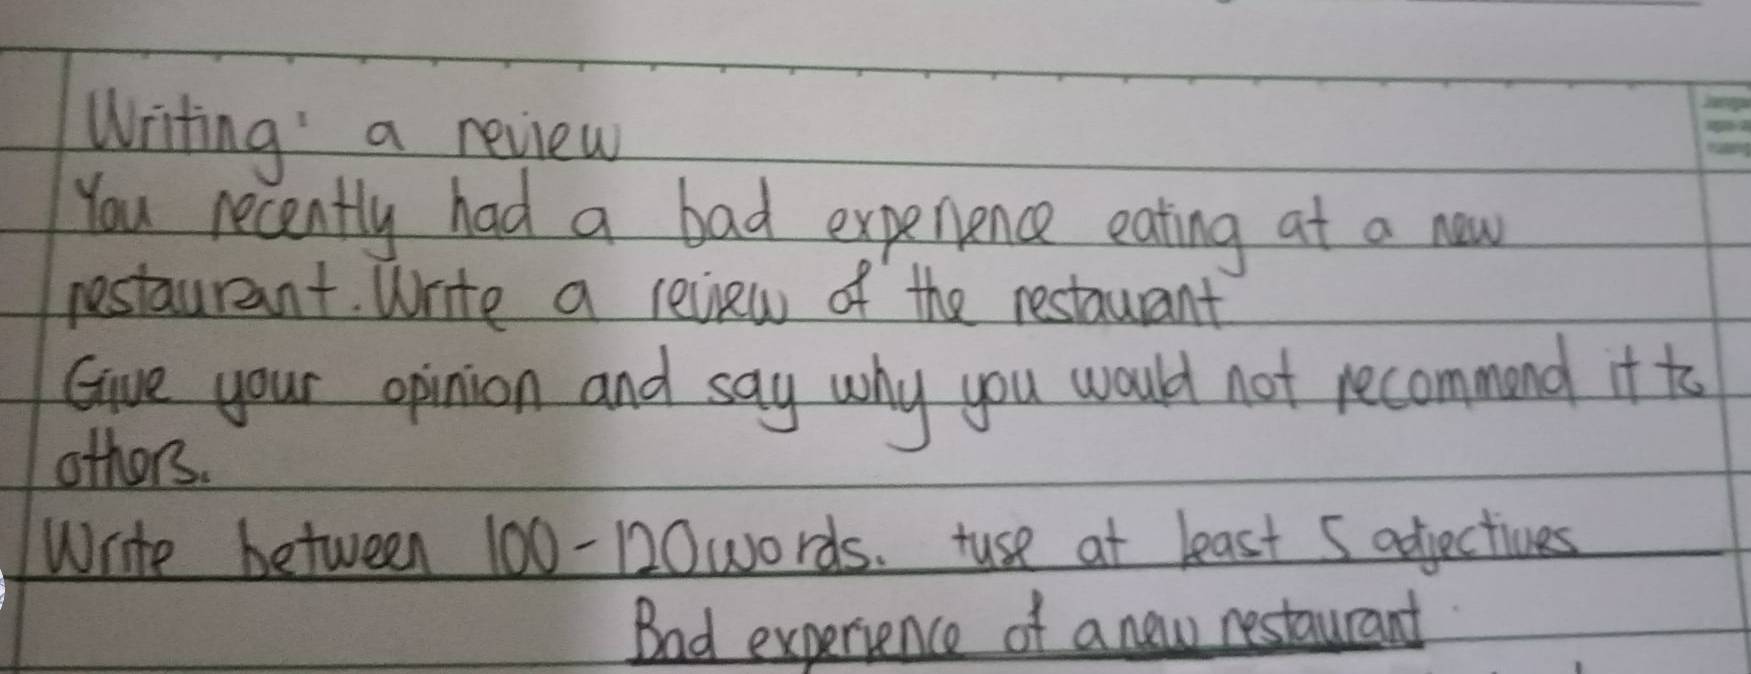 Writing: a review
You recently had a bad experience eating at a new
restaurant. Write a review of the restaurant
Give your opinion and say why you would not recommend it to
others.
Write between 100-120 words. +use at least 5 adjectives
Bad experience of a new restaurant